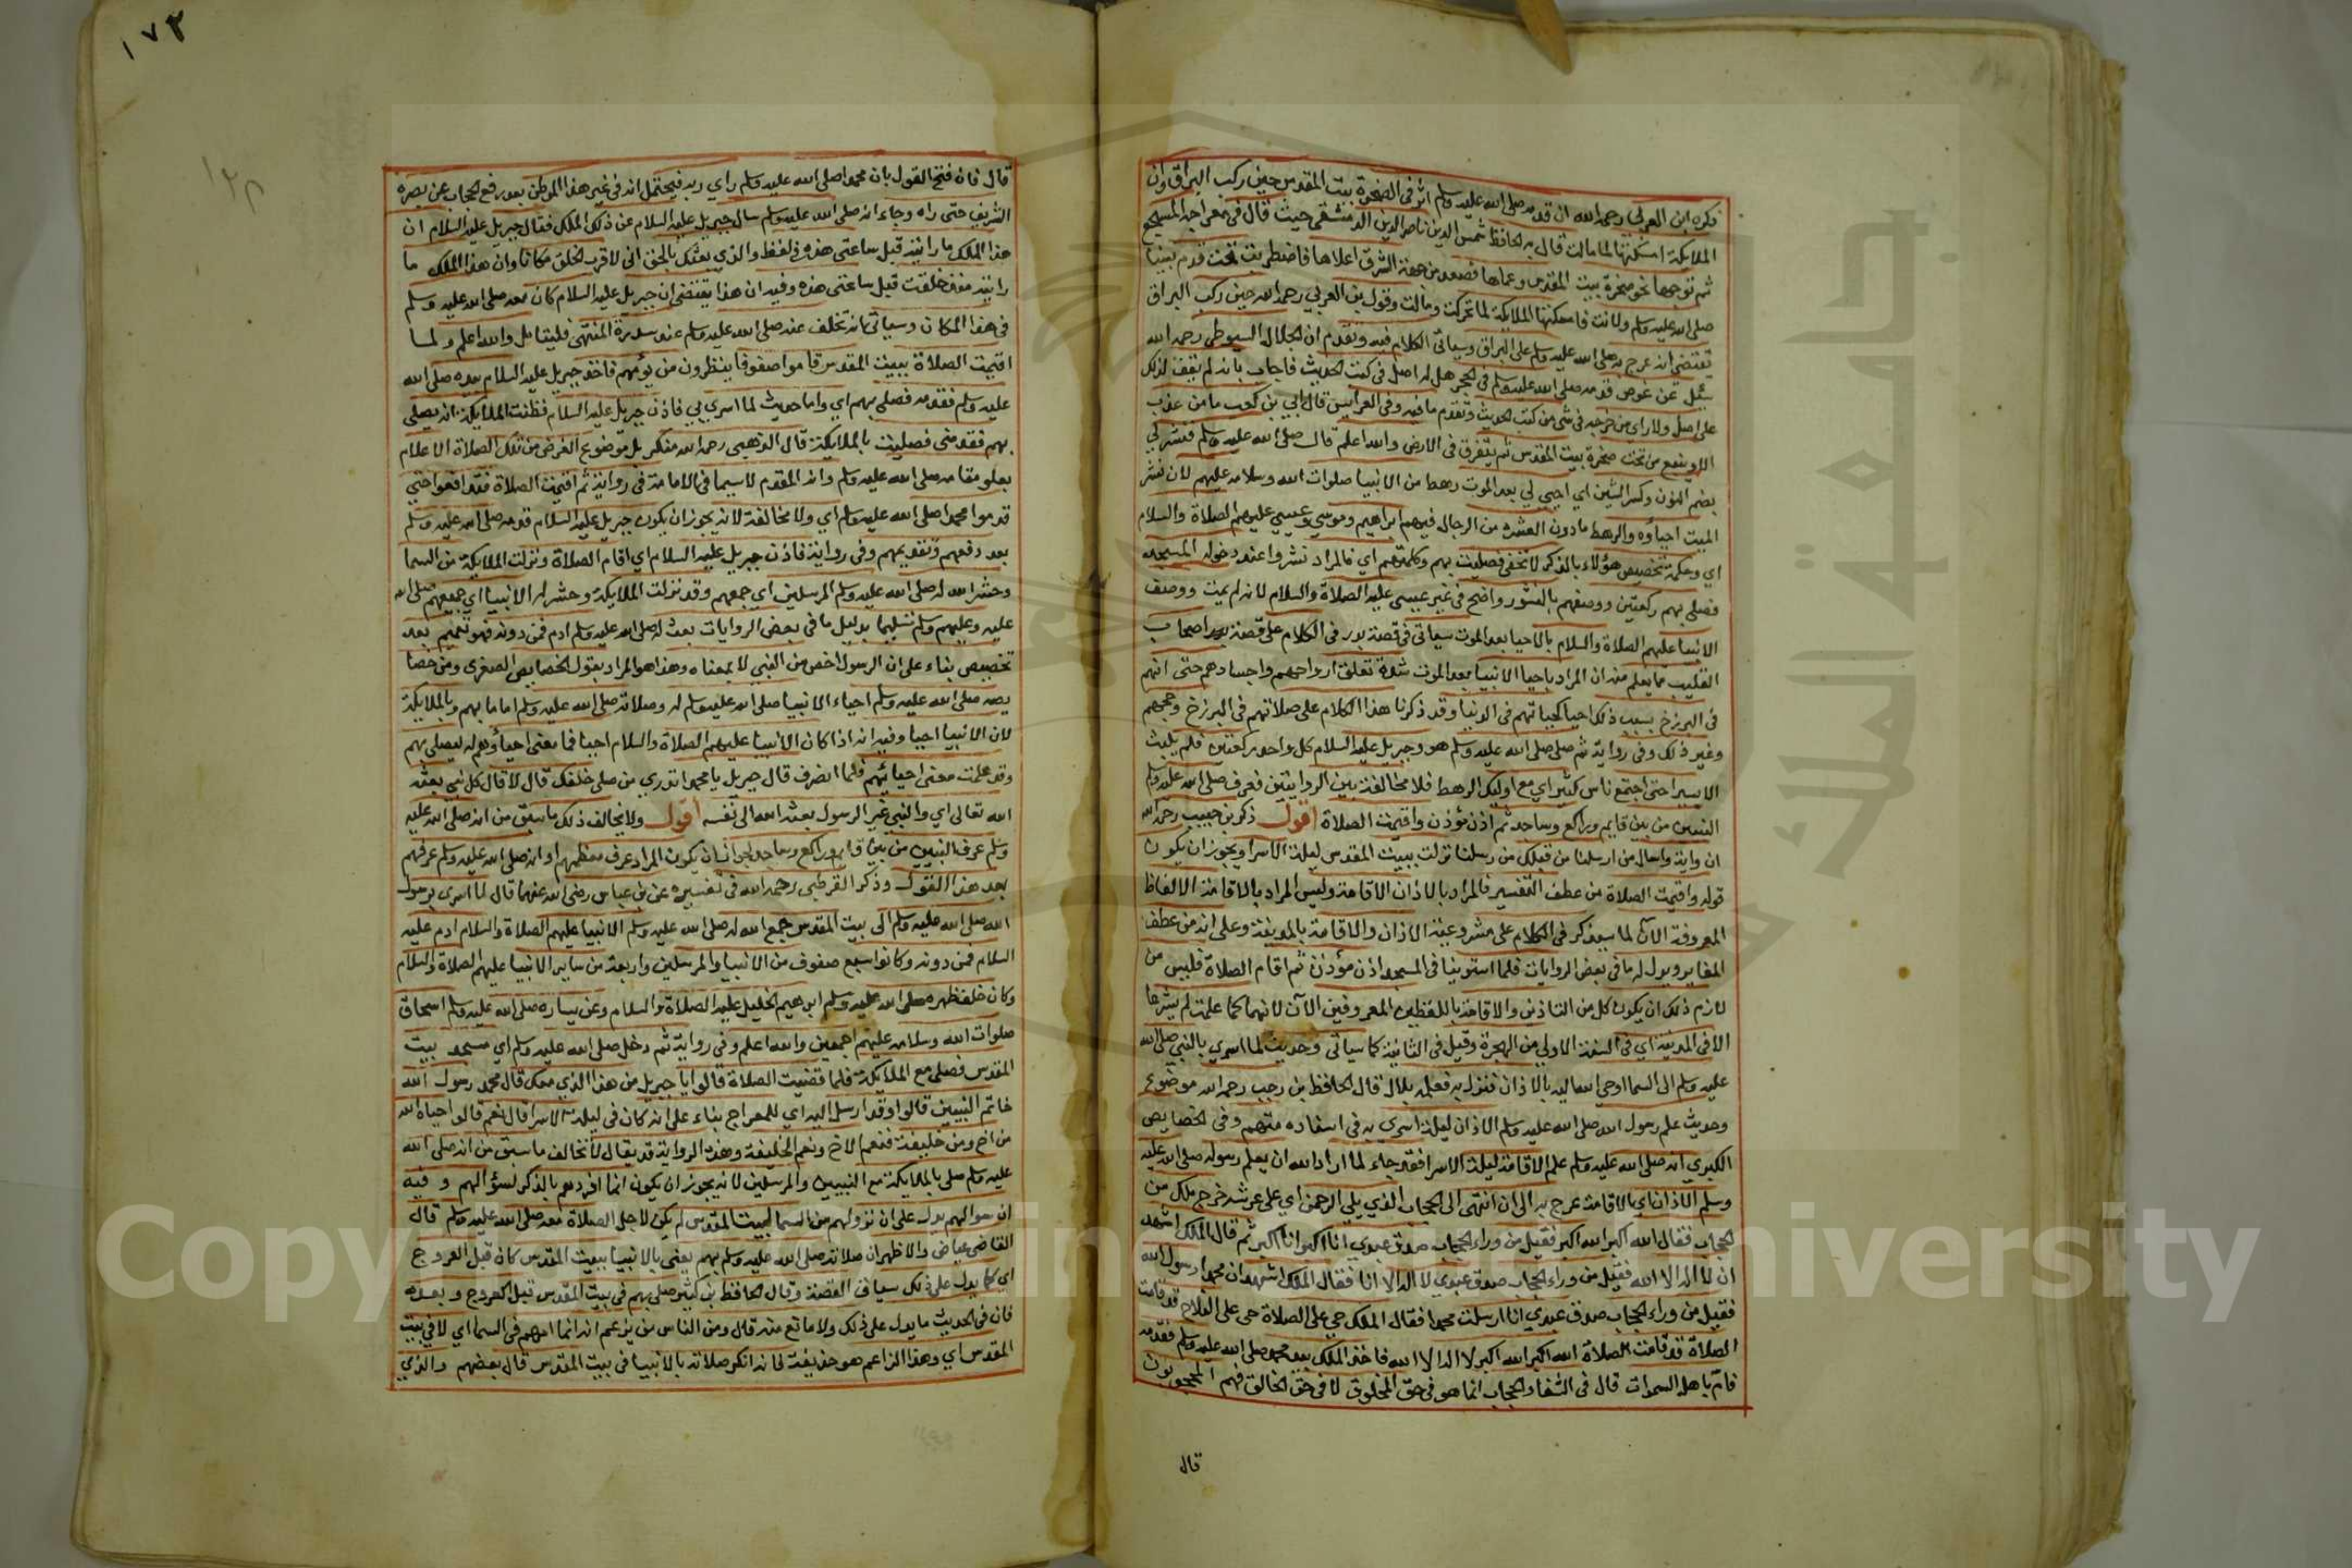 ذكره ابن العربي رحمه الله ان قدمه صلى الله عليه وسلم اثر في الصخرة ببيت المقدس حين ركب البراق وان
الملايكة امسكتها لما مالت قال به الحافظ شمس الدين ناصر الدين الدمشقي حيث قال في معراجه المسجع
ثم توجها نحو صخرة بيت المقدس وعماها فصعد من جهة الشرق اعلاها فاضطربت تحت قدم نبينا
صلى الله عليه وسلم ولانت فامسكتها الملايكة لما تحركت ومالت وقول بن العربي رحمه الله حين ركب البراق
يقتضي انه عرج به صلى الله عليه وسلم على البراق وسياتي الكلام فيه وتقدم ان الجلال السيوطي رحمه الله
سئل عن غوص قدمه صلى الله عليه وسلم في الحجر هل له اصل في كتب الحديث فاجاب بانه لم يقف لذلك
على اصل ولا راي من خرجه في شي من كتب الحديث وتقدم ما فيه وفي العرايس قال ابي بن كعب ما من عذب
الا وينبع من تحت صخرة بيت المقدس ثم يتفرق في الارض والله اعلم قال صلى الله عليه وسلم فنشر لي
بضم النون وكسر الشين اي احيي لي بعد الموت رهط من الانبيا صلوات الله وسلامه عليهم لان نشر
الميت احياؤه والرهط ما دون العشرة من الرجال فيهم ابراهيم وموسي وعيسي عليهم الصلاة والسلام
اي وحكمة تخصيص هؤلاء بالذكر لا تخفى فصليت بهم وكلمتهم اي فالمراد نشروا عند دخوله المسجد
فصلى بهم ركعتين ووصفهم بالنشور واضح في غير عيسى عليه الصلاة والسلام لانه لم يمت ووصف
الانبيا عليهم الصلاة والسلام بالاحيا بعد الموت سياتي في قصة بدر في الكلام على قصة بدر اصحاب
القليب ما يعلم منه ان المراد باحيا الانبيا بعد الموت شدة تعلق ارواحهم واجسادهم حتى انهم
في البرزخ بسبب ذلك احيا كحياتهم في الدنيا وقد ذكرنا هذا الكلام على صلاتهم في البرزخ وحجهم
وغير ذلك وفي رواية ثم صلى صلى الله عليه وسلم هو وجبريل عليه السلام كل واحد ركعتين فلم يلبث
الا يسيرا حتى اجتمع ناس كثير اي مع اوليك الرهط فلا مخالفة بين الروايتين فعرف صلى الله عليه وسلم
النبيين من بين قايم وراكع وساجد ثم اذن مؤذن واقيمت الصلاة اقول ذكر بن حبيب رحمه الله
ان واية واسال من ارسلنا من قبلك من رسلنا نزلت ببيت المقدس ليلة الاسرا ويجوز ان يكون
قوله واقيمت الصلاة من عطف التفسير فالمراد بالاذان الاقامة وليس المراد بالاقامة الالفاظ
المعروفة الآن لما سيذكر في الكلام على مشروعية الاذان والاقامة بالمدينة وعلى انه من عطف
المغاير ويدل له ما في بعض الروايات فلما استوينا في المسجد اذن مؤذن ثم اقام الصلاة فليس من
لازم ذلك ان يكون كل من التاذين والاقامة باللفظين المعروفين الآن لانهما كما علمت لم يشرعا
الا في المدينة اي في السنة الاولى من الهجرة وقيل في الثانية كما سياتي وحديث لما اسري بالنبي صلى الله
عليه وسلم الى السما اوحى الله اليه بالاذان فنزل به فعلمه بلال قال الحافظ بن رجب رحمه الله موضوع
وحديث علم رسول الله صلى الله عليه وسلم الاذان ليلة اسري به في اسناده متهم وفي الخصايص
الكبري انه صلى الله عليه وسلم علم الاقامة ليلة الاسرا فقد جاء لما اراد الله ان يعلم رسوله صلى الله عليه
وسلم الاذان اي بالاقامة عرج به الى ان انتهى الى الحجاب الذي يلي الرحمن اي على عرشه خرج ملك من
الحجاب فقال الله اكبر الله اكبر فقيل من وراء الحجاب صدق عبدي انا اكبر انا اكبر ثم قال الملك اشهد
ان لا اله الا الله فقيل من وراء الحجاب صدق عبدي لا اله الا انا فقال الملك اشهد ان محمدا رسول الله
فقيل من وراء الحجاب صدق عبدي انا ارسلت محمدا فقال الملك حي على الصلاة حي على الفلاح قد قامت
الصلاة قد قامت الصلاة الله اكبر الله اكبر لا اله الا الله فاخذ الملك بيد محمد صلى الله عليه وسلم فقدمه
فام باهل السموات قال في الشفا والحجاب انما هو في حق المخلوق لا في حق الخالق فهم المحجوبون
قال
١٧٣
قال فان فتح القول بان محمدا صلى الله عليه وسلم راي ربه فيحتمل انه في غير هذا الموطن بعد رفع الحجاب عن بصره
الشريف حتى راه وجاء انه صلى الله عليه وسلم سال جبريل عليه السلام عن ذلك الملك فقال جبريل عليه السلام ان
هذا الملك ما رايته قبل ساعتي هذه وفي لفظ والذي بعثك بالحق اني لاقرب الخلق مكانا وان هذا الملك ما
رايته منذ خلقت قبل ساعتي هذه وفيه ان هذا يقتضي ان جبريل عليه السلام كان معه صلى الله عليه وسلم
في هذا المكان وسياتي انه تخلف عنه صلى الله عليه وسلم عند سدرة المنتهى فليتامل والله اعلم ولما
اقيمت الصلاة ببيت المقدس قاموا صفوفا ينتظرون من يؤمهم فاخذ جبريل عليه السلام بيده صلى الله
عليه وسلم فقدمه فصلى بهم اي واما حديث لما اسري بي فاذن جبريل عليه السلام فظنت الملايكة انه يصلي
بهم فقدمني فصليت بالملايكة قال الذهبي رحمه الله منكر بل موضوع الغرض من تلك الصلاة الاعلام
بعلو مقامه صلى الله عليه وسلم وانه المقدم لا سيما في الامامة في رواية ثم اقيمت الصلاة فتدافعوا حتى
قدموا محمدا صلى الله عليه وسلم اي ولا مخالفة لانه يجوز ان يكون جبريل عليه السلام قدمه صلى الله عليه وسلم
بعد دفعهم وتقديمهم وفي رواية فاذن جبريل عليه السلام اي اقام الصلاة ونزلت الملايكة من السما
وحشر الله له صلى الله عليه وسلم المرسلين اي جمعهم وقد نزلت الملايكة وحشر له الانبيا اي جميعهم صلى الله
عليه وعليهم وسلم تسليما بدليل ما في بعض الروايات بعث له صلى الله عليه وسلم ادم فمن دونه فهو تعميم بعد
تخصيص بناء على ان الرسول اخص من النبي لا بمعناه وهذا هو المراد بقول الخصايص الصغرى ومن خصا
يصه صلى الله عليه وسلم احياء الانبيا صلى الله عليه وسلم له وصلاته صلى الله عليه وسلم اماما بهم وبالملايكة
لان الانبيا احيا وفيه انه اذا كان الانبيا عليهم الصلاة والسلام احيا فما معنى احياؤهم له ليصلي بهم
وقد علمت معنى احيائهم فلما انصرف قال جبريل يا محمد اتدري من صلى خلفك قال لا قال كل نبي بعثه
الله تعالى اي والنبي غير الرسول بعثه الله الى نفسه اقول ولا يخالف ذلك ما سبق من انه صلى الله عليه
وسلم عرف النبيين من بين قايم وراكع وساجد لجواز ان يكون المراد عرف معظمهم او انه صلى الله عليه وسلم عرفهم
بعد هذا القول وذكر القرطبي رحمه الله في تفسيره عن بن عباس رضي الله عنهما قال لما اسري برسول
الله صلى الله عليه وسلم الى بيت المقدس جمع الله له صلى الله عليه وسلم الانبيا عليهم الصلاة والسلام ادم عليه
السلام فمن دونه وكانوا سبع صفوف من الانبيا والمرسلين واربعة من ساير الانبيا عليهم الصلاة والسلام
وكان خلف ظهره صلى الله عليه وسلم ابرهيم الخليل عليه الصلاة والسلام وعن يساره صلى الله عليه وسلم اسحاق
صلوات الله وسلامه عليهم اجمعين والله اعلم وفي رواية ثم دخل صلى الله عليه وسلم اي مسجد بيت
المقدس فصلى مع الملايكة فلما قضيت الصلاة قالوا يا جبريل من هذا الذي معك قال محمد رسول الله
خاتم النبيين قالوا وقد ارسل اليه اي للمعراج بناء على انه كان في ليلة الاسرا قال نعم قالوا حياه الله
من اخ ومن خليفة فنعم الاخ ونعم الخليفة وهذه الرواية قد يقال لا تخالف ما سبق من انه صلى الله
عليه وسلم صلى بالملايكة مع النبيين والمرسلين لانه يجوز ان يكون انما افردهم بالذكر لسؤالهم وفيه
ان سوالهم يدل على ان نزولهم من السما لبيت المقدس لم يكن لاجل الصلاة معه صلى الله عليه وسلم قال
القاضي عياض والاظهر ان صلاته صلى الله عليه وسلم بهم يعني بالانبيا ببيت المقدس كان قبل العروج
اي كما يدل على ذلك سياق القصة وقال الحافظ بن كثير صلى بهم في بيت المقدس قبل العروج وبعده
فان في الحديث ما يدل على ذلك ولا مانع منه قال ومن الناس من يزعم انه انما امهم في السما اي لا في بيت
المقدس اي وهذا الزاعم هو حذيفة فانه انكر صلاته بالانبيا في بيت المقدس قال بعضهم والذي